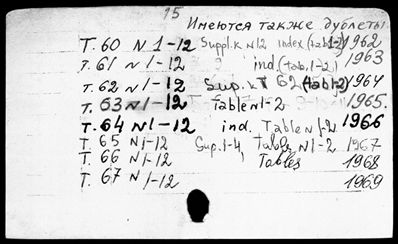 15
Имеются также дублеты
Т. 60 N 1-12 Suppl. к N12 index (tab. 1-2) 1962
т. 61 N 1-12 ind. (tab. 1-2) 1963
т. 62 N 1-12 Sup. к т 62 (tab 1-2) 1964
т. 63 N 1-12 Table N 1-2 1965.
т. 64 N 1-12 ind. Table N 1-2 1966
Т. 65 N 1-12 Sup. 1-4, Tables N 1-2 1967
Т. 66 N 1-12 Tables 1968
Т. 67 N 1-12 1969